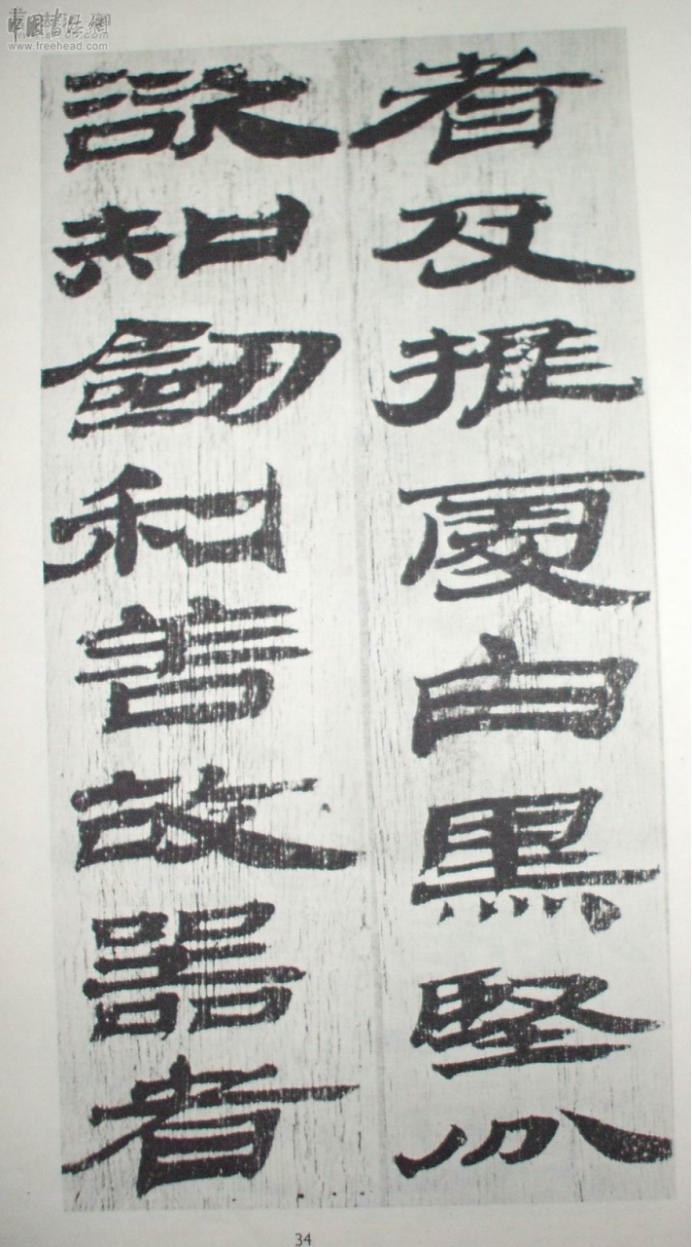 中国书法网
www.freehead.com
者及推處白黑堅分
欲知劒利善故器者
34